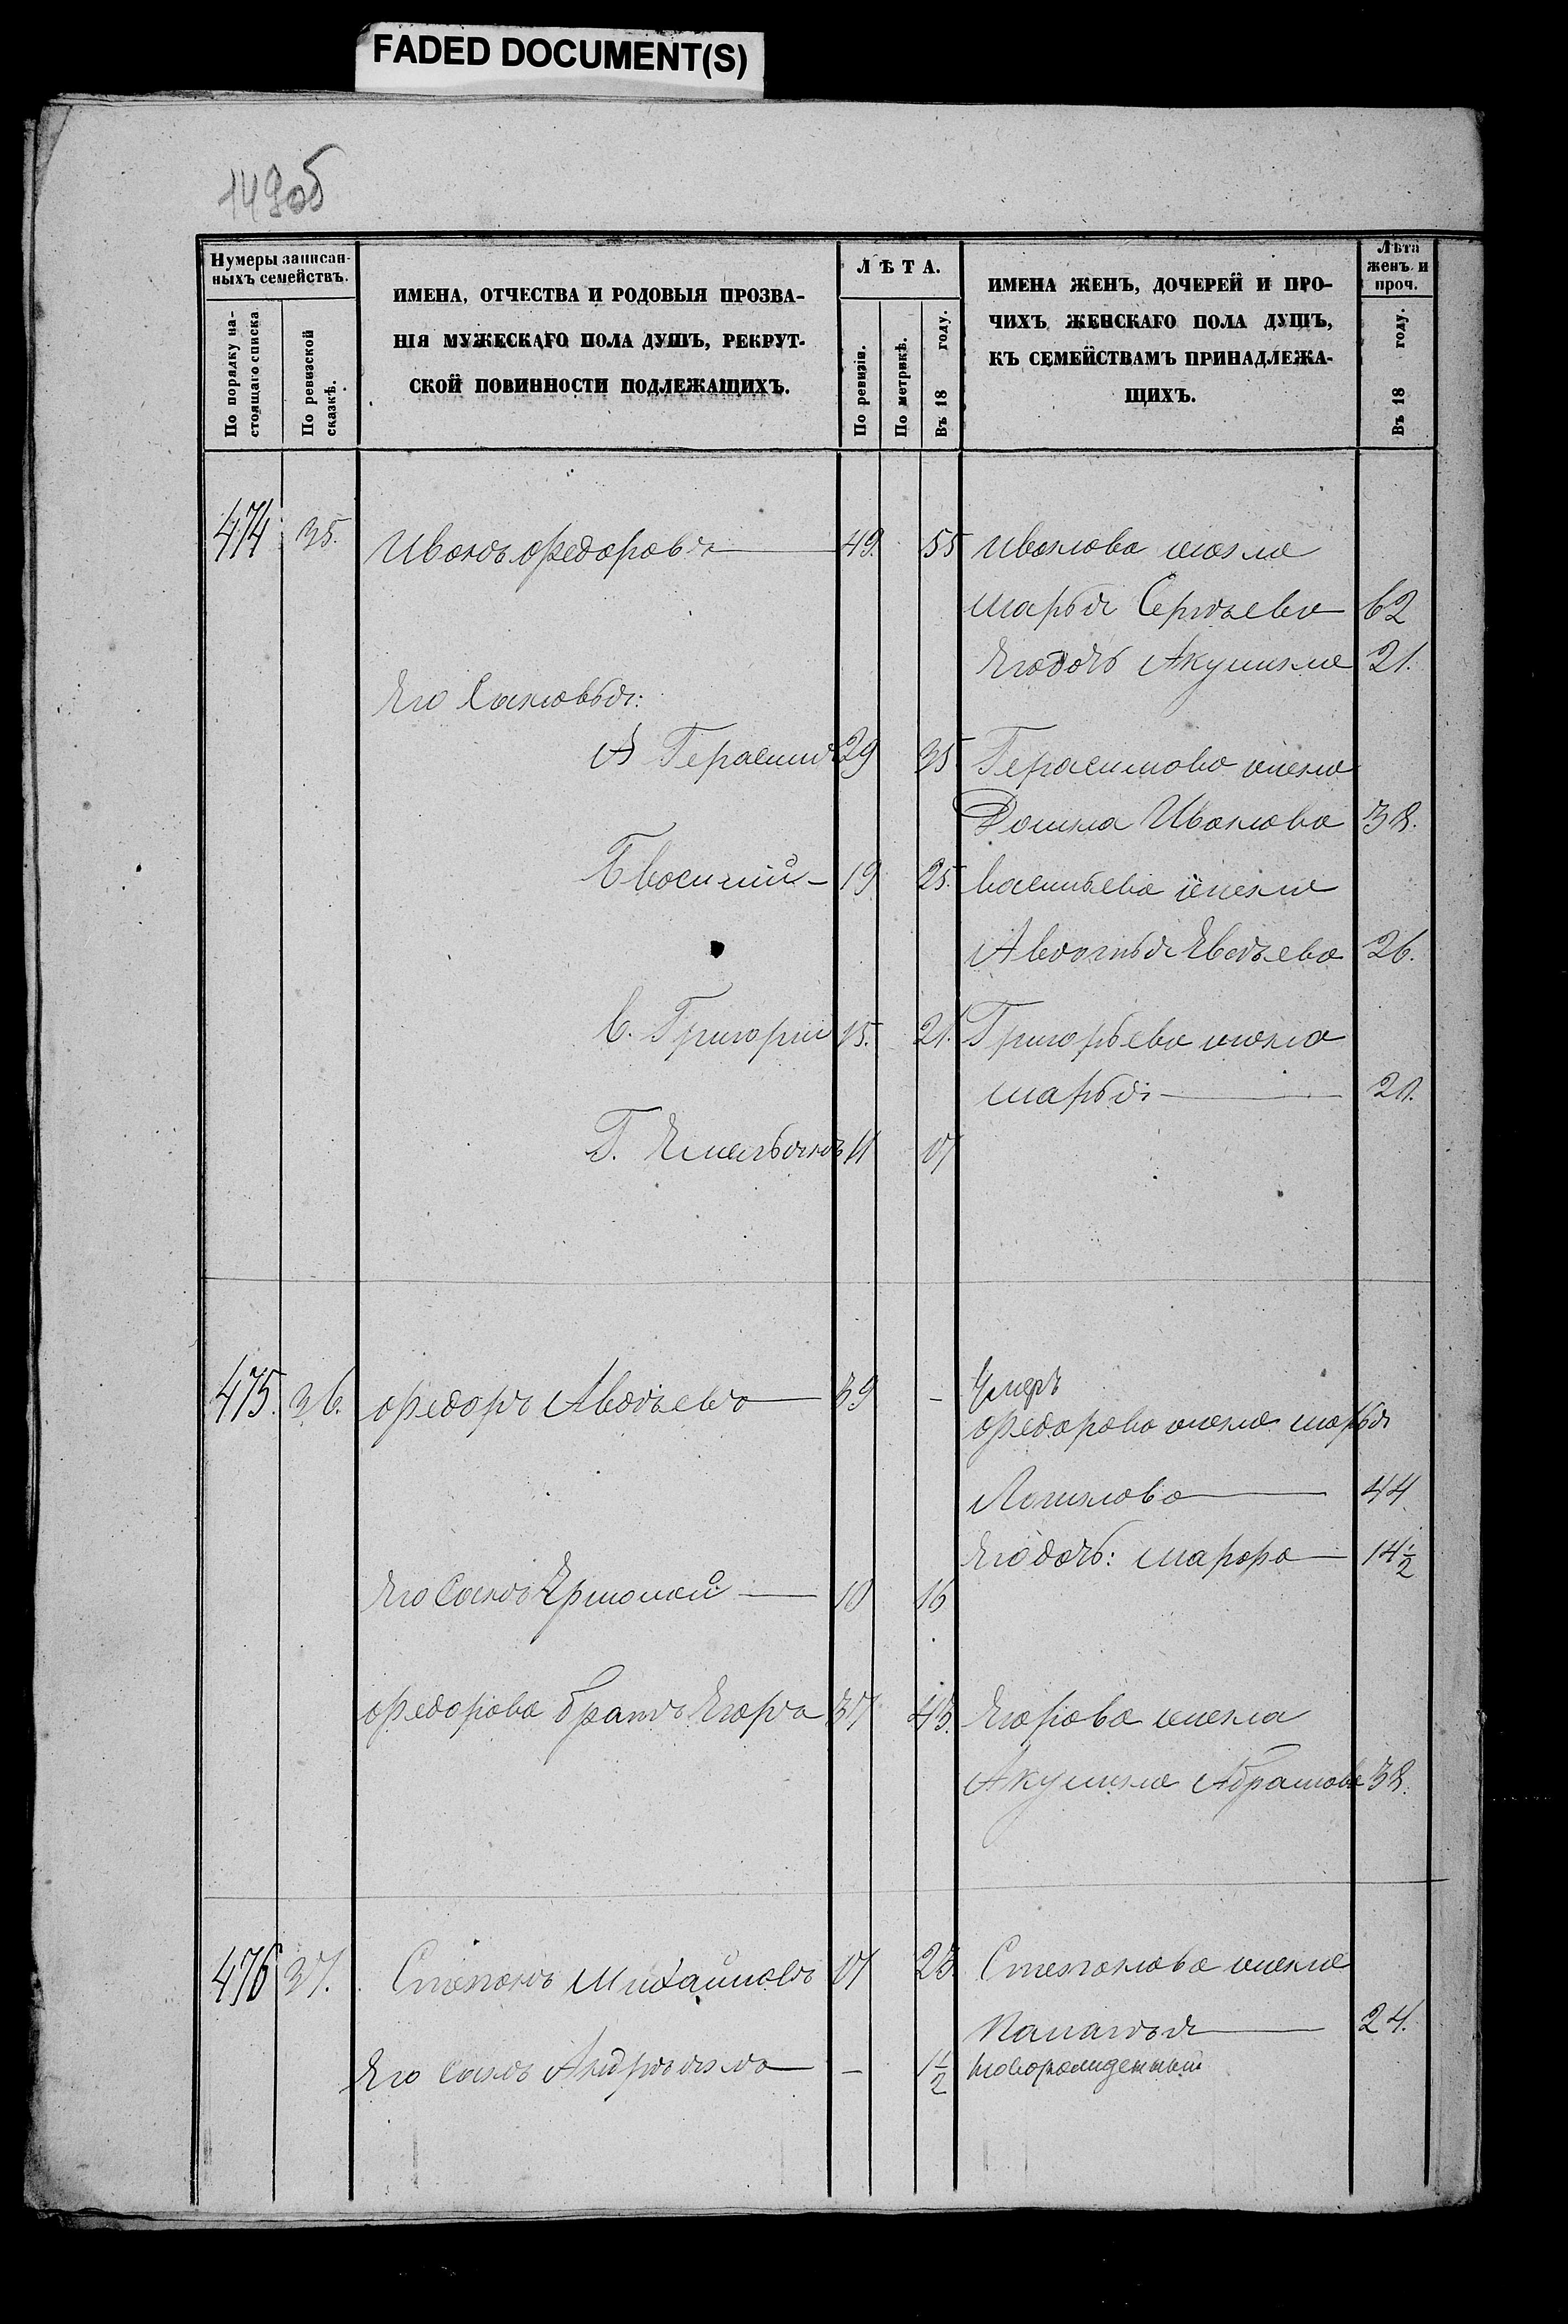 FADED DOCUMENT(S)
149об
Нумеры записан-
ныхъ семействъ.
По порядку на-
стоящаго списка
По ревизской
сказкѣ.
ИМЕНА, ОТЧЕСТВА И РОДОВЫЯ ПРОЗВА-
НІЯ МУЖЕСКАГО ПОЛА ДУШЪ, РЕКРУТ-
СКОЙ ПОВИННОСТИ ПОДЛЕЖАЩИХЪ.
ЛѢТА.
По ревизіи.
По метрикѣ.
Въ 18 году.
ИМЕНА ЖЕНЪ, ДОЧЕРЕЙ И ПРО-
ЧИХЪ ЖЕНСКАГО ПОЛА ДУШЪ,
КЪ СЕМЕЙСТВАМЪ ПРИНАДЛЕЖА-
ЩИХЪ.
Лѣта
женъ и
проч.
Въ 18 году.
474 35. Иванъ Федоровъ 49. 55 Иванова жена
Марья Сергѣева 62
Его дочь Акулина 21.
Его Сыновья:
А Герасимъ 29 35 Герасимова жена
Домна Иванова 38.
Б Василий 19 25. Васильева жена
Авдотья Евдѣева 26.
В. Григорий 15. 21. Григорьева жена
Марья 20.
Г. Емельянъ 11 17
475. 36. Федоръ Авдѣевъ 39 - Умеръ
Федорова жена Марья
Логинова 44
Его дочь: Марфа 14 1/2
Его Сынъ Ермолай 10 16
Федорова братъ Егоръ 37 43. Егорова жена
Акулина Абрамова 38.
476 37. Степанъ Михайловъ 17 23. Степанова жена
Палагѣя 24.
Его Сынъ Андреянъ - 1 1/2 Новорожденный